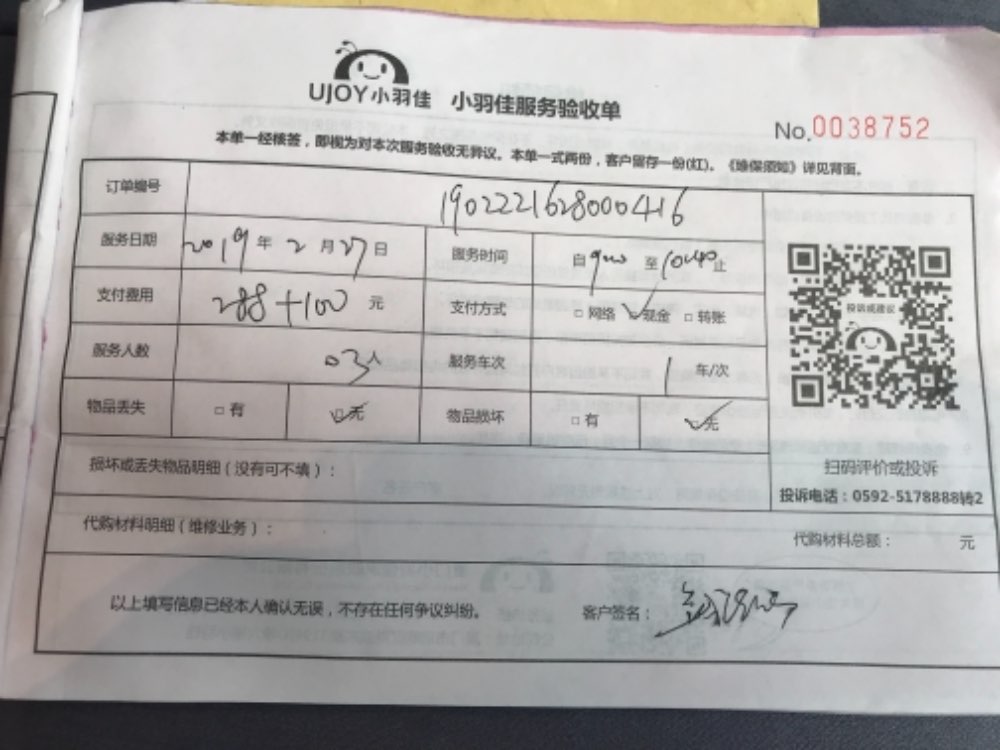 UJOY小羽佳 小羽佳服务验收单
No.0038752
本单一经核签，即视为对本次服务验收无异议。本单一式两份，客户留存一份(红)。《维保须知》详见背面。
订单编号 190222162800416
服务日期 2019年2月27日 服务时间 自9:00至10:40止
支付费用 288+100元 支付方式 □网络 ☑现金 □转账
服务人数 03人 服务车次 1车/次
物品丢失 □有 ☑无 物品损坏 □有 ☑无
投诉或建议
扫码评价或投诉
投诉电话：0592-5178888转2
损坏或丢失物品明细（没有可不填）：
代购材料明细（维修业务）：
代购材料总额： 元
以上填写信息已经本人确认无误，不存在任何争议纠纷。 客户签名：